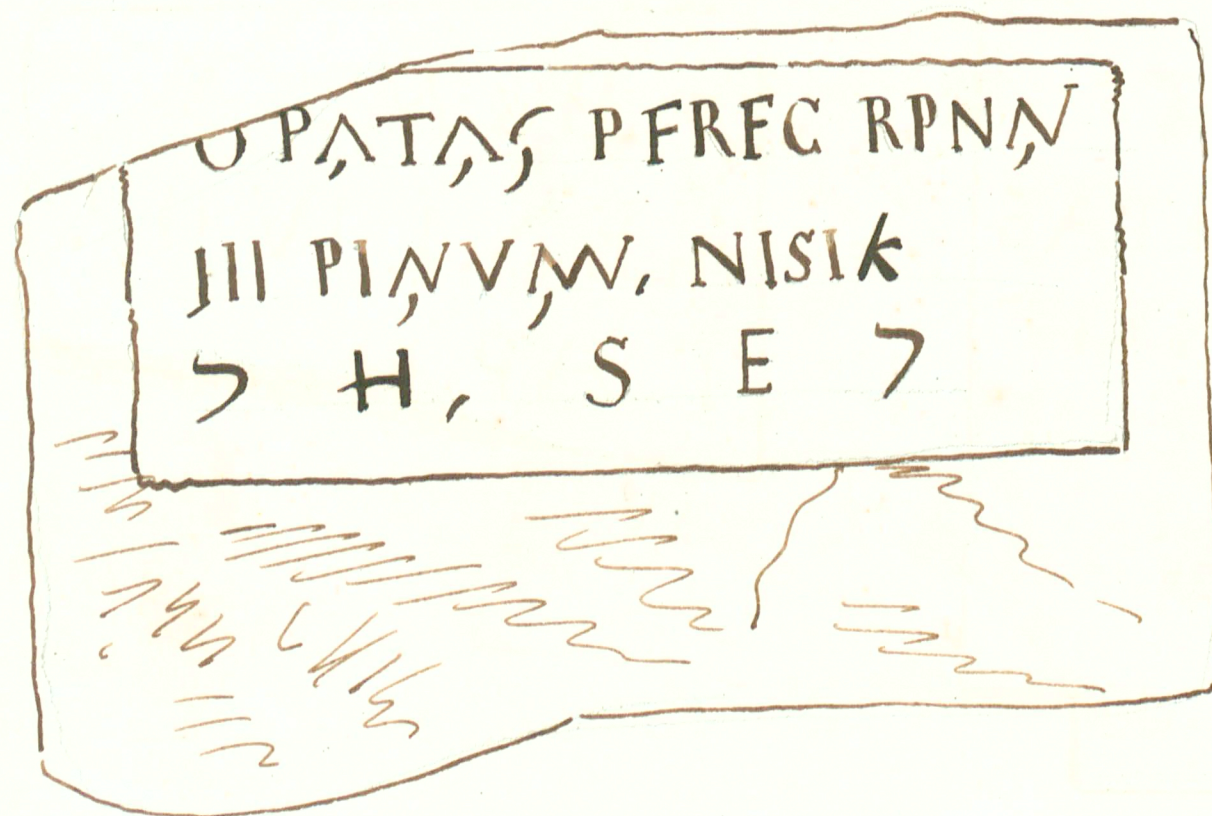 OPATAS PFRFC RPNN
III PINVM, NISIK
H, S E